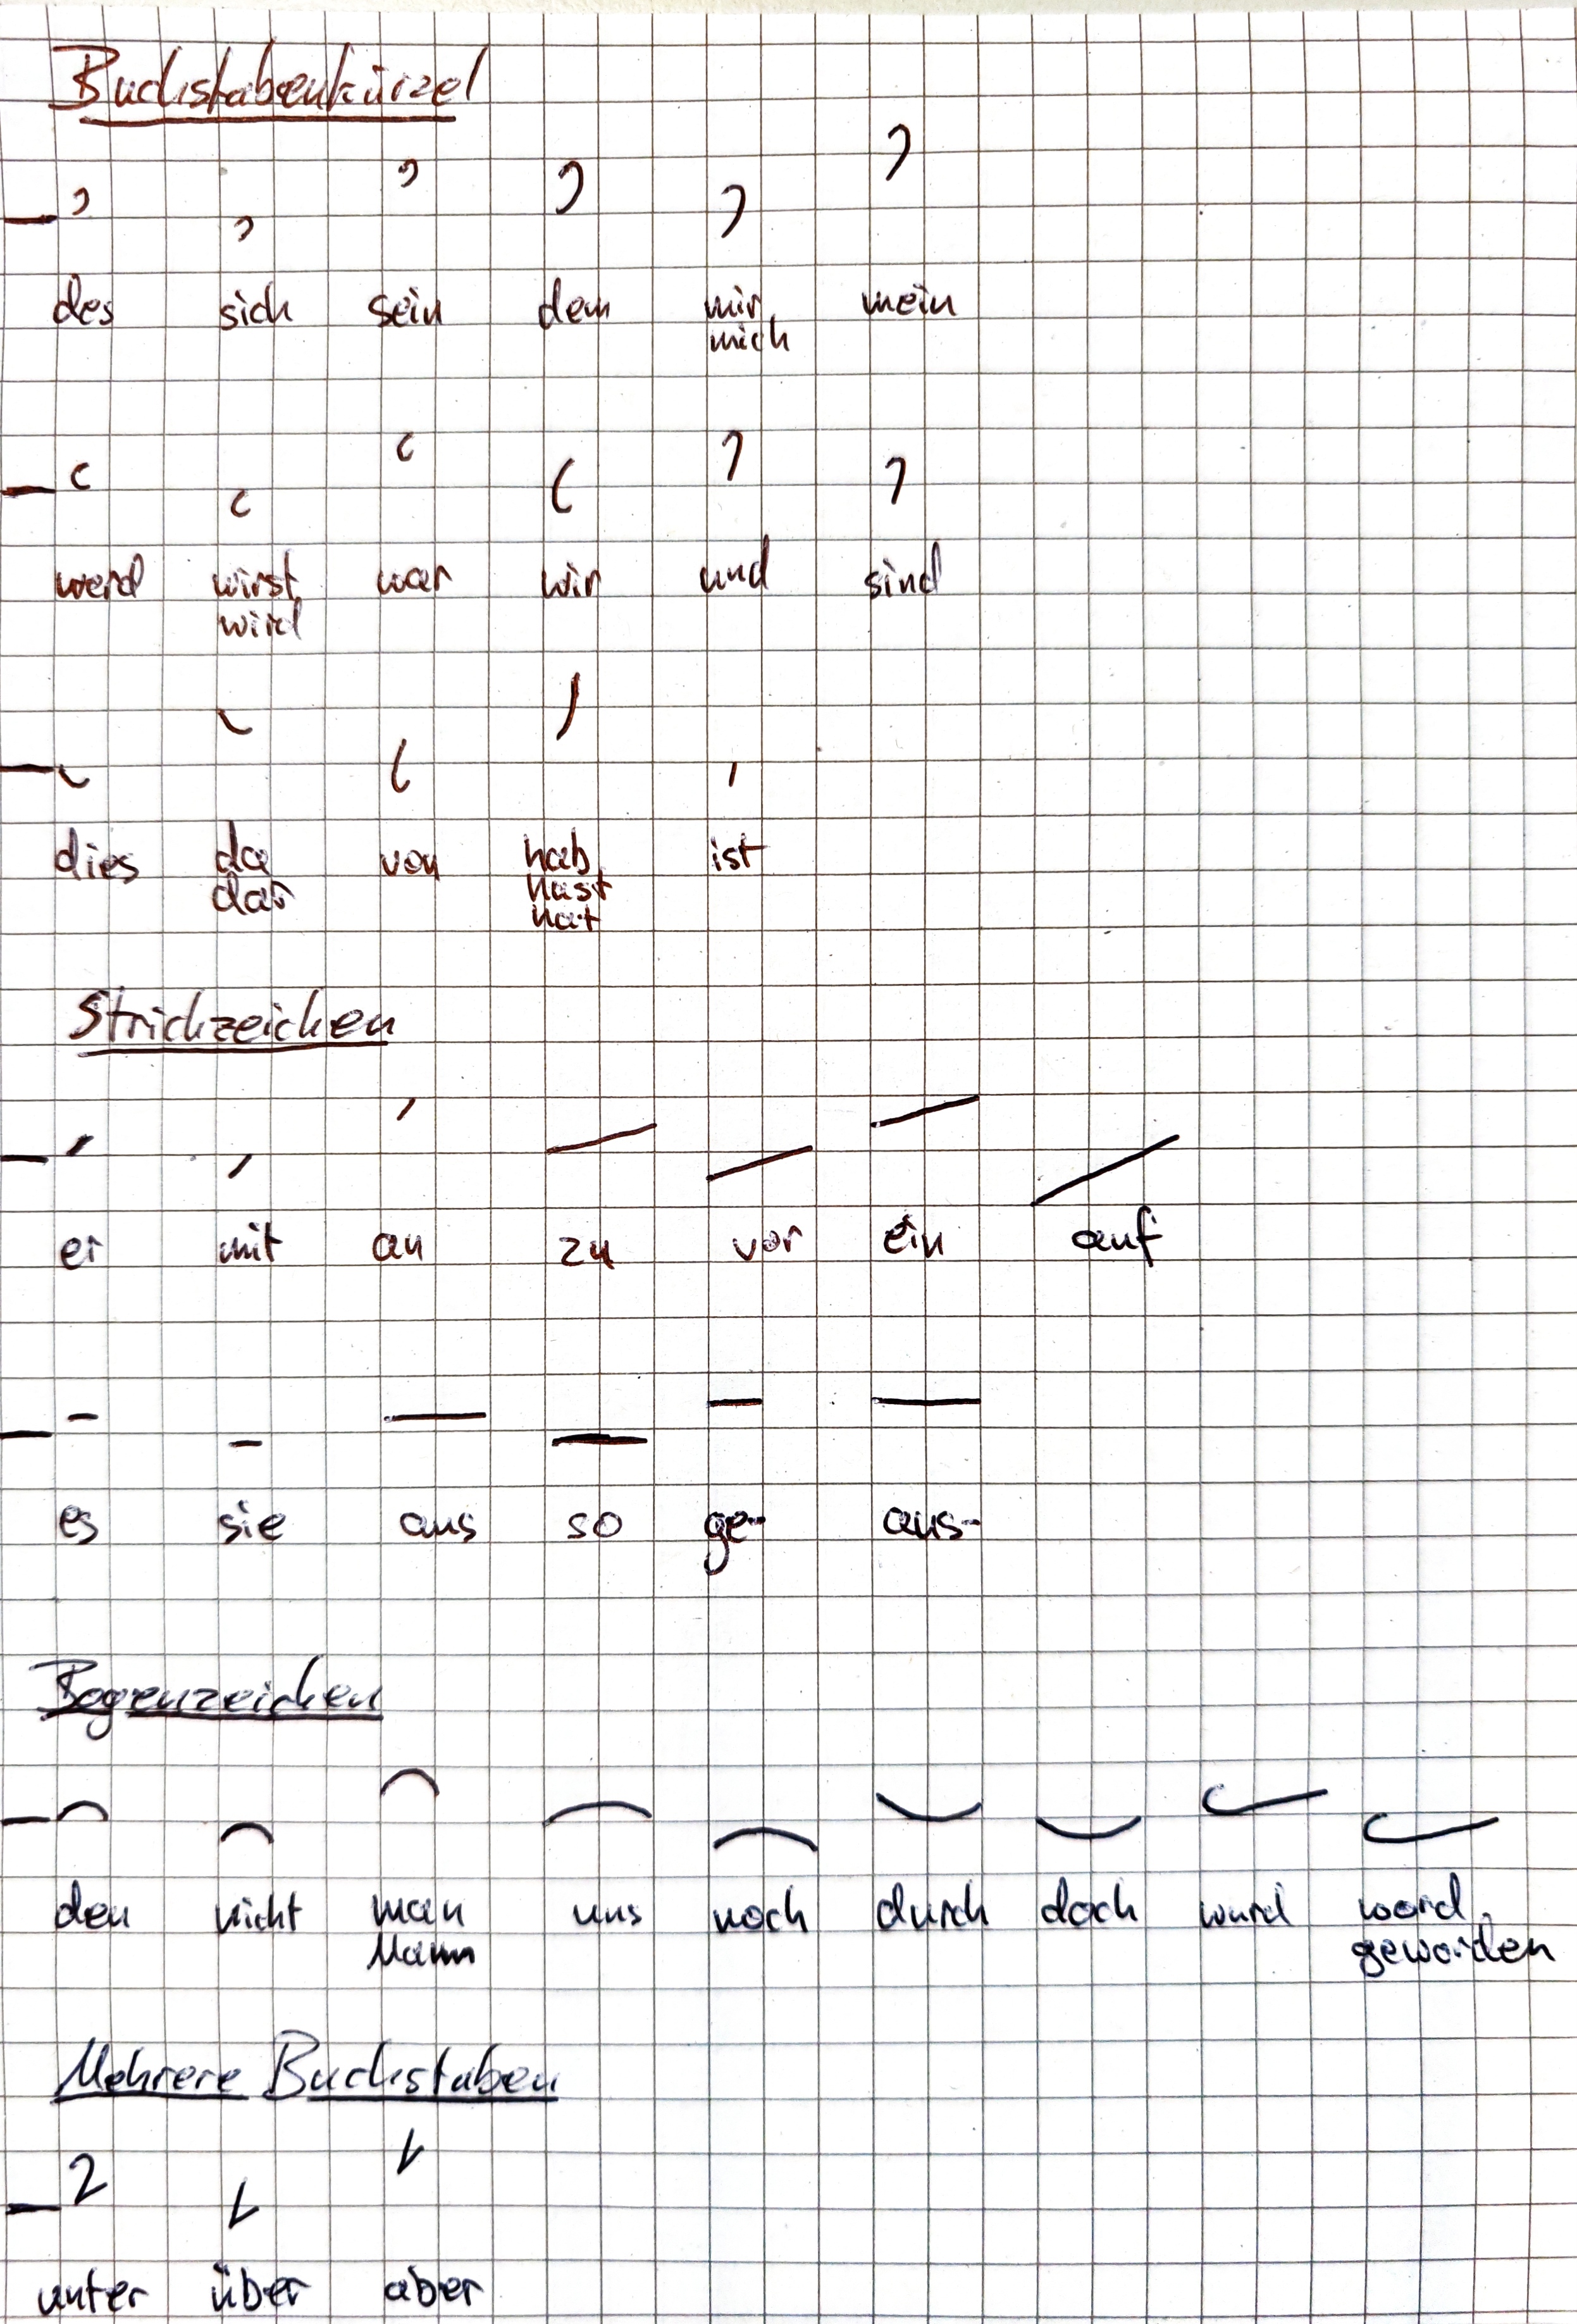 Buchstabenkürzel
des sich sein dem mir, mein
mich
werd wirst, war wir und sind
wird
dies da von hab, ist
dar hast
hat
Strichzeichen
er mit an zu vor ein auf
es sie aus so ge- aus-
Bogenzeichen
den nicht man uns noch durch doch wurd word,
Mann geworden
Mehrere Buchstaben
unter über aber